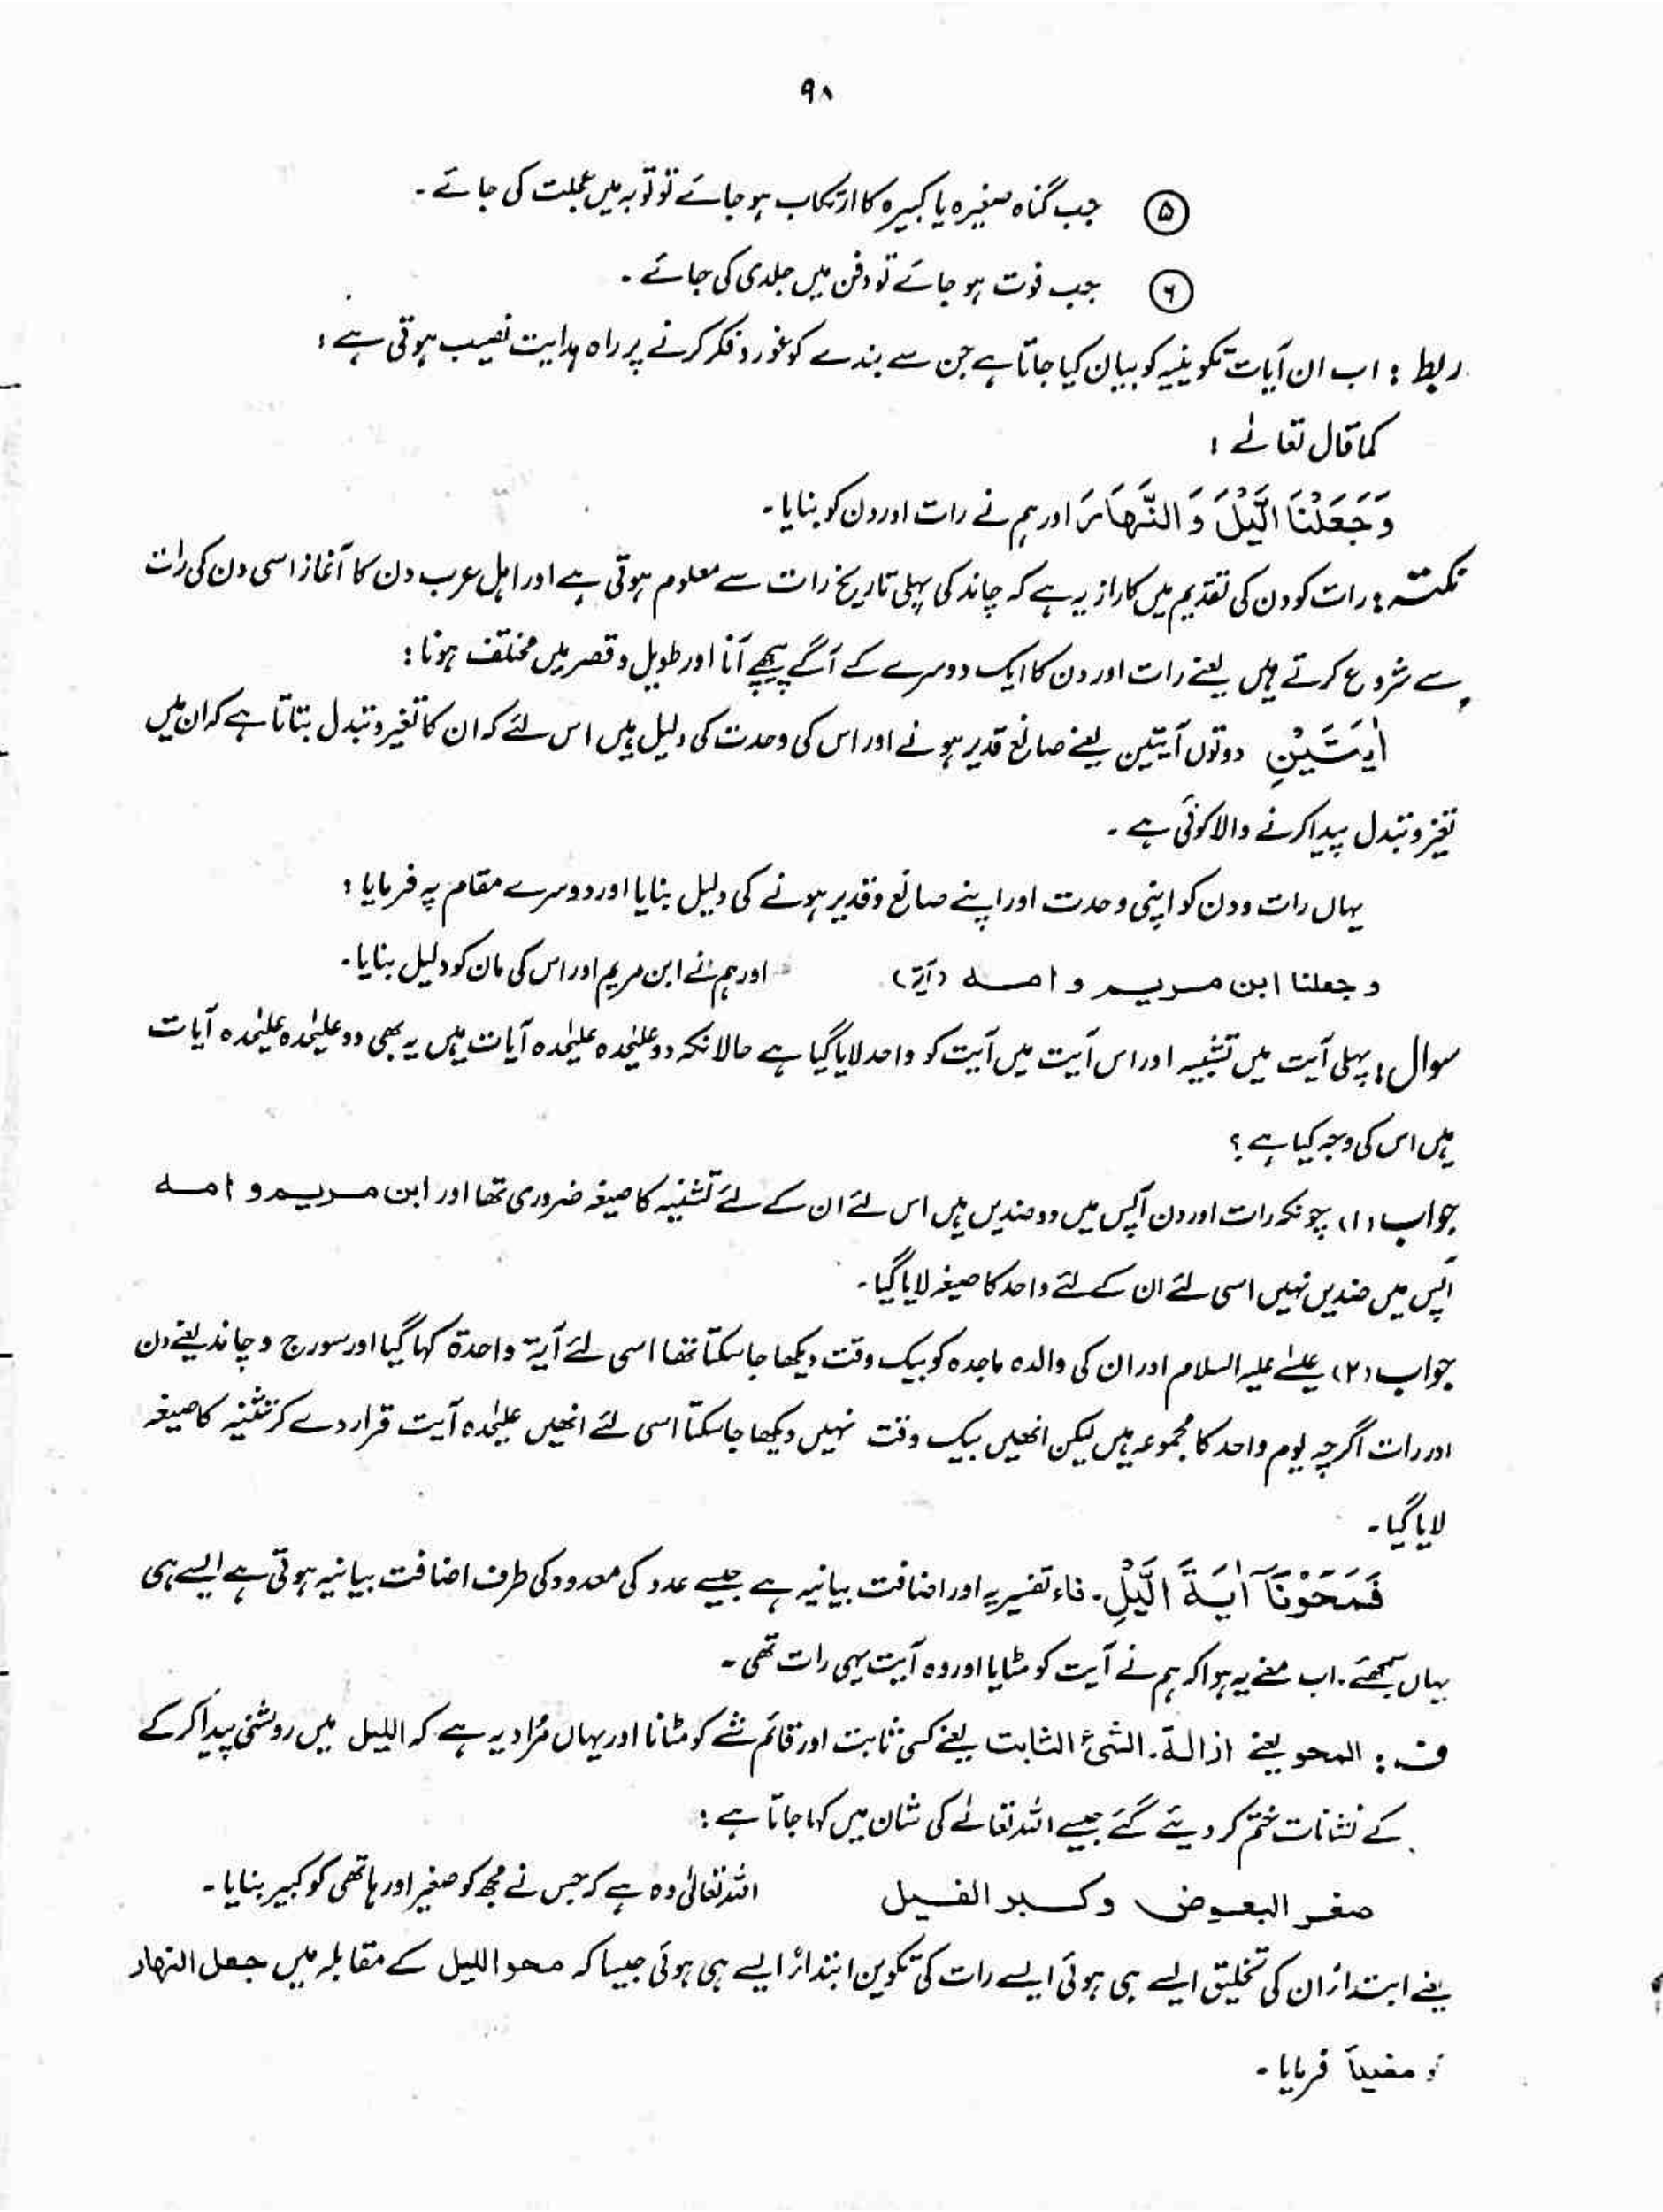 ۹۸
۵ جب گناہ صغیرہ یا کبیرہ کا ارتکاب ہو جائے تو توبہ میں عجلت کی جائے۔
۶ جب فوت ہو جائے تو دفن میں جلدی کی جائے۔
ربط : اب ان آیات تکوینیہ کو بیان کیا جاتا ہے جن سے بندے کو غور و فکر کرنے پر راہ ہدایت نصیب ہوتی ہے :
کما قال تعالےٰ :
وَجَعَلْنَا الَّیْلَ وَ النَّہَارَ اور ہم نے رات اور دن کو بنایا۔
نکتہ : رات کو دن کی تقدیم میں کا راز یہ ہے کہ چاند کی پہلی تاریخ رات سے معلوم ہوتی ہے اور اہل عرب دن کا آغاز اسی دن کی رات
سے شروع کرتے ہیں یعنے رات اور دن کا ایک دوسرے کے آگے پیچھے آنا اور طویل و قصر میں مختلف ہونا :
اٰیَتَیْنِ دونوں آیتیں یعنے صانع قدیر ہونے اور اس کی وحدت کی دلیل ہیں اس لئے کہ ان کا تغیر و تبدل بتاتا ہے کہ ان میں
تغیر و تبدل پیدا کرنے والا کوئی ہے۔
یہاں رات و دن کو اپنی وحدت اور اپنے صانع و قدیر ہونے کی دلیل بنایا اور دوسرے مقام پہ فرمایا :
و جعلنا ابن مریم و امہ (آیۃ) اور ہم نے ابن مریم اور اس کی ماں کو دلیل بنایا۔
سوال : پہلی آیت میں تثنیہ اور اس آیت میں آیت کو واحد لایا گیا ہے حالانکہ دو علیٰحدہ علیٰحدہ آیات ہیں یہ بھی دو علیٰحدہ علیٰحدہ آیات
ہیں اس کی وجہ کیا ہے ؟
جواب (۱) چونکہ رات اور دن آپس میں دو ضدیں ہیں اس لئے ان کے لئے تثنیہ کا صیغہ ضروری تھا اور ابن مریم و امہ
آپس میں ضدیں نہیں اسی لئے ان کے لئے واحد کا صیغہ لایا گیا۔
جواب (۲) عیسٰے علیہ السلام اور ان کی والدہ ماجدہ کو بیک وقت دیکھا جا سکتا تھا اسی لئے آیۃ واحدۃ کہا گیا اور سورج و چاند یعنے دن
اور رات اگرچہ یوم واحد کا مجموعہ ہیں لیکن انھیں بیک وقت نہیں دیکھا جا سکتا اسی لئے انھیں علیٰحدہ آیت قرار دے کر تثنیہ کا صیغہ
لایا گیا۔
فَمَحَوْنَآ اٰیَۃَ الَّیْلِ۔ فاء تفسیریہ اور اضافت بیانیہ ہے جیسے عدد کی معدود کی طرف اضافت بیانیہ ہوتی ہے ایسے ہی
یہاں سمجھئے۔ اب معنے یہ ہوا کہ ہم نے آیت کو مٹایا اور وہ آیت یہی رات تھی۔
ف : المحو یعنے ازالۃ۔ الشیٔ الثابت یعنے کسی ثابت اور قائم شے کو مٹانا اور یہاں مُراد یہ ہے کہ اللیل میں روشنی پیدا کر کے
کے نشانات ختم کر دیئے گئے جیسے اللہ تعالےٰ کی شان میں کہا جاتا ہے :
صغر البعوض وکبر الفیل اللہ تعالیٰ وہ ہے کہ جس نے مچھر کو صغیر اور ہاتھی کو کبیر بنایا۔
یعنے ابتداءً ان کی تخلیق ایسے ہی ہوئی ایسے رات کی تکوین ابتداءً ایسے ہی ہوئی جیسا کہ محو اللیل کے مقابلہ میں جعل النہار
مضیئاً فرمایا۔